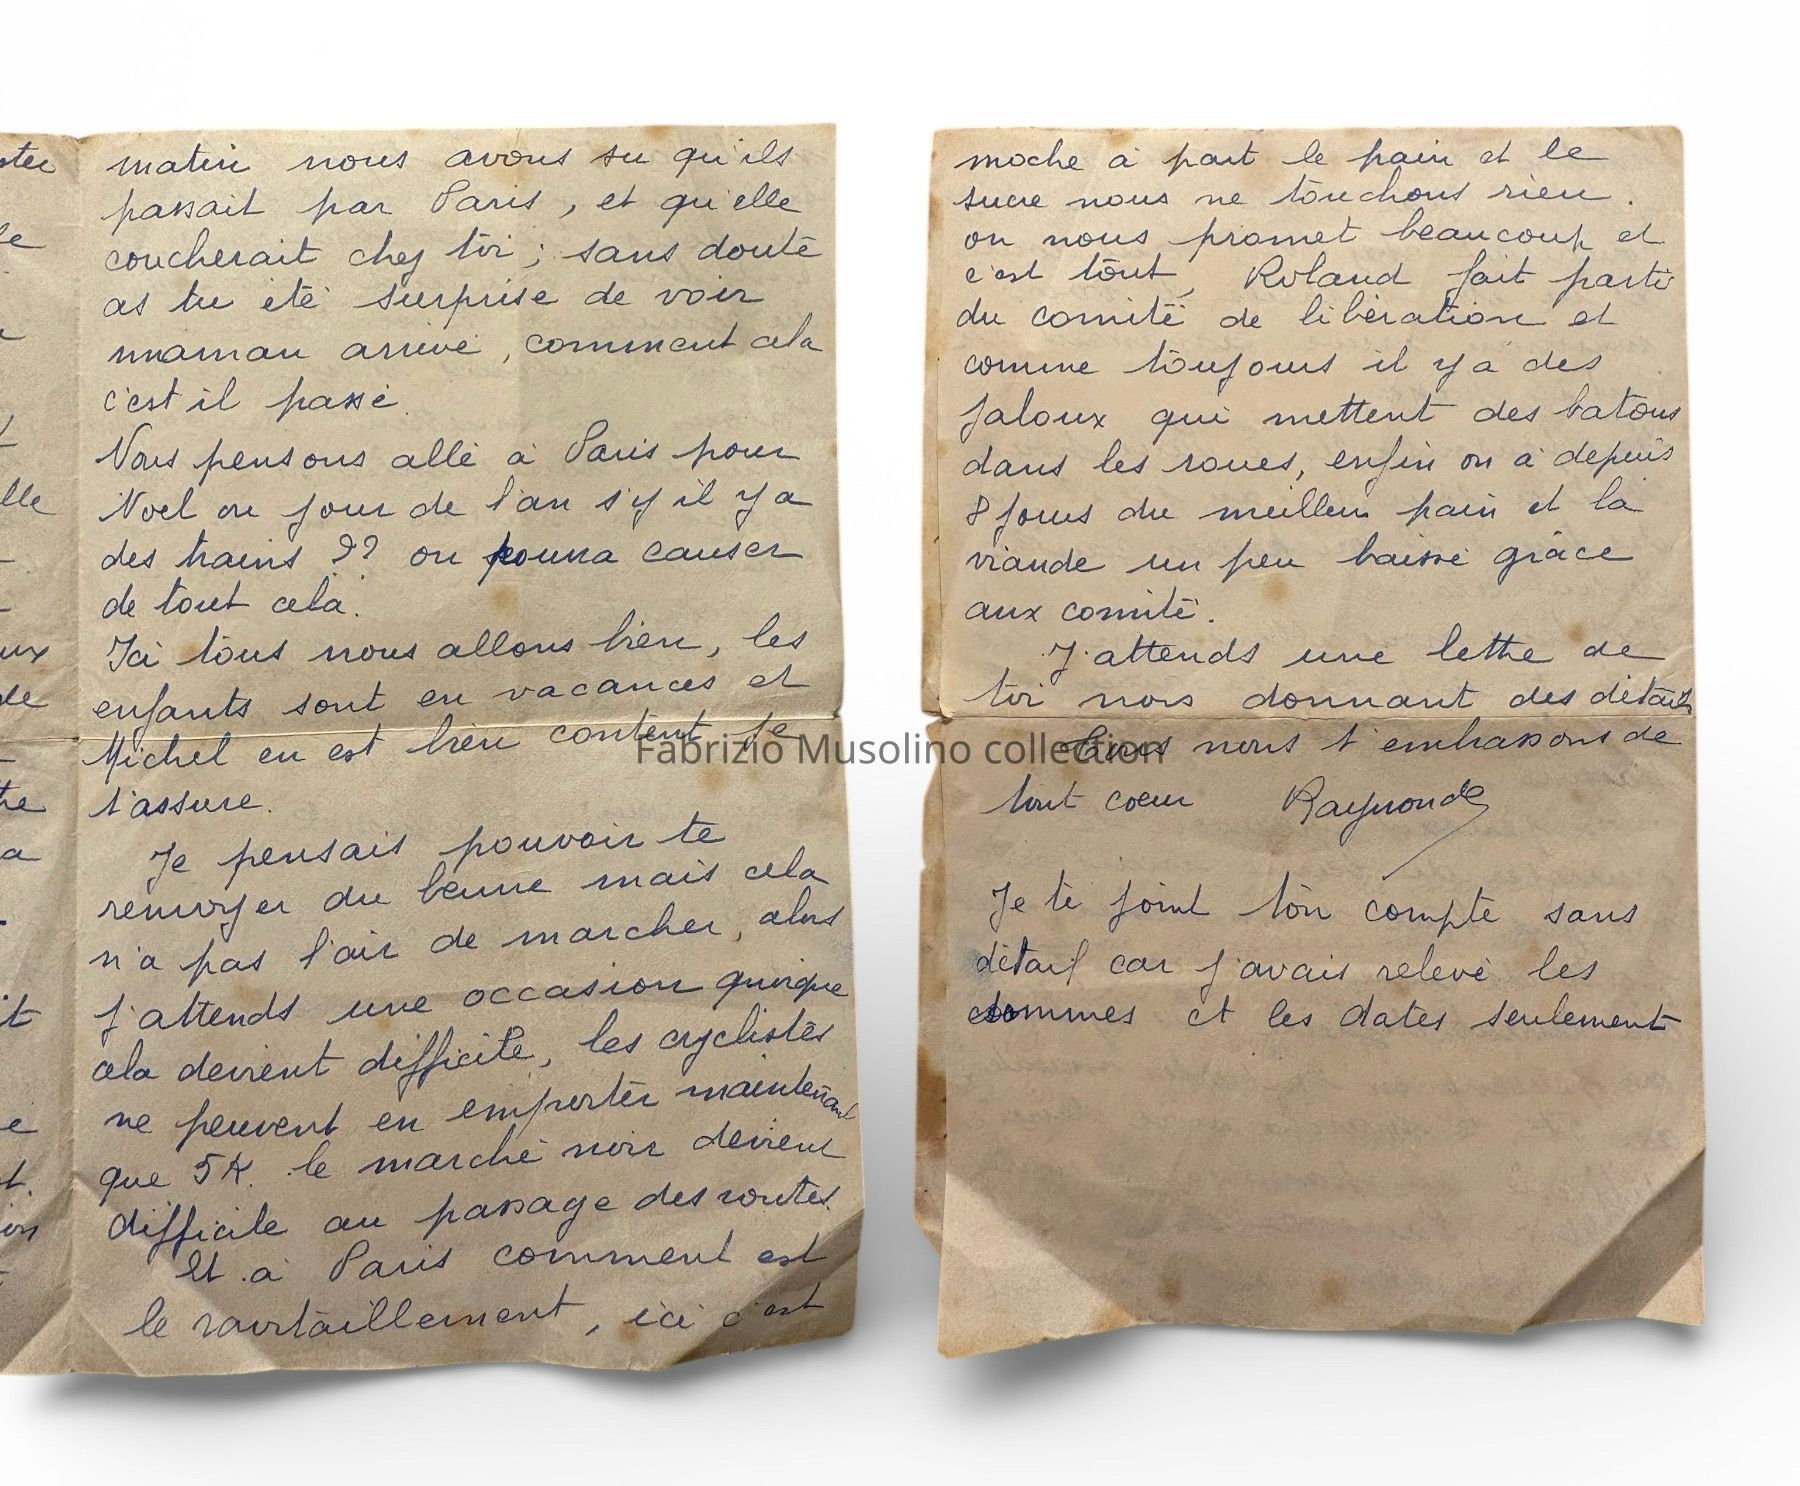 matin nous avons su qu'ils
passait par Paris, et qu'elle
coucherait chez toi; sans doute
as tu été surprise de voir
maman arrivé, comment cela
c'est il passé.
Nous pensons allé à Paris pour
Noel ou jour de l'an s'y il y a
des trains ?? on pourra causer
de tout cela.
Ici tous nous allons bien, les
enfants sont en vacances et
Michel en est bien content je
t'assure.
Je pensais pouvoir te
renvoyer du beurre mais cela
n'a pas l'air de marcher, alors
j'attends une occasion quoique
cela devient difficile, les cyclistes
ne peuvent en emporter maintenant
que 5K. le marché noir devient
difficile au passage des routes.
Et à Paris comment est
le ravitaillement, ici c'est
moche à part le pain et le
sucre nous ne touchons rien.
on nous promet beaucoup et
c'est tout, Roland fait parti
du comité de libération et
comme toujours il y a des
jaloux qui mettent des batons
dans les roues, enfin on a depuis
8 jours du meilleur pain et la
viande un peu baissé grâce
aux comité.
J'attends une lettre de
toi nous donnant des détails
Tous nous t'embrassons de
tout coeur Raymonde
Je te joint ton compte sans
détail car j'avais relevé les
sommes et les dates seulement
Fabrizio Musolino collection